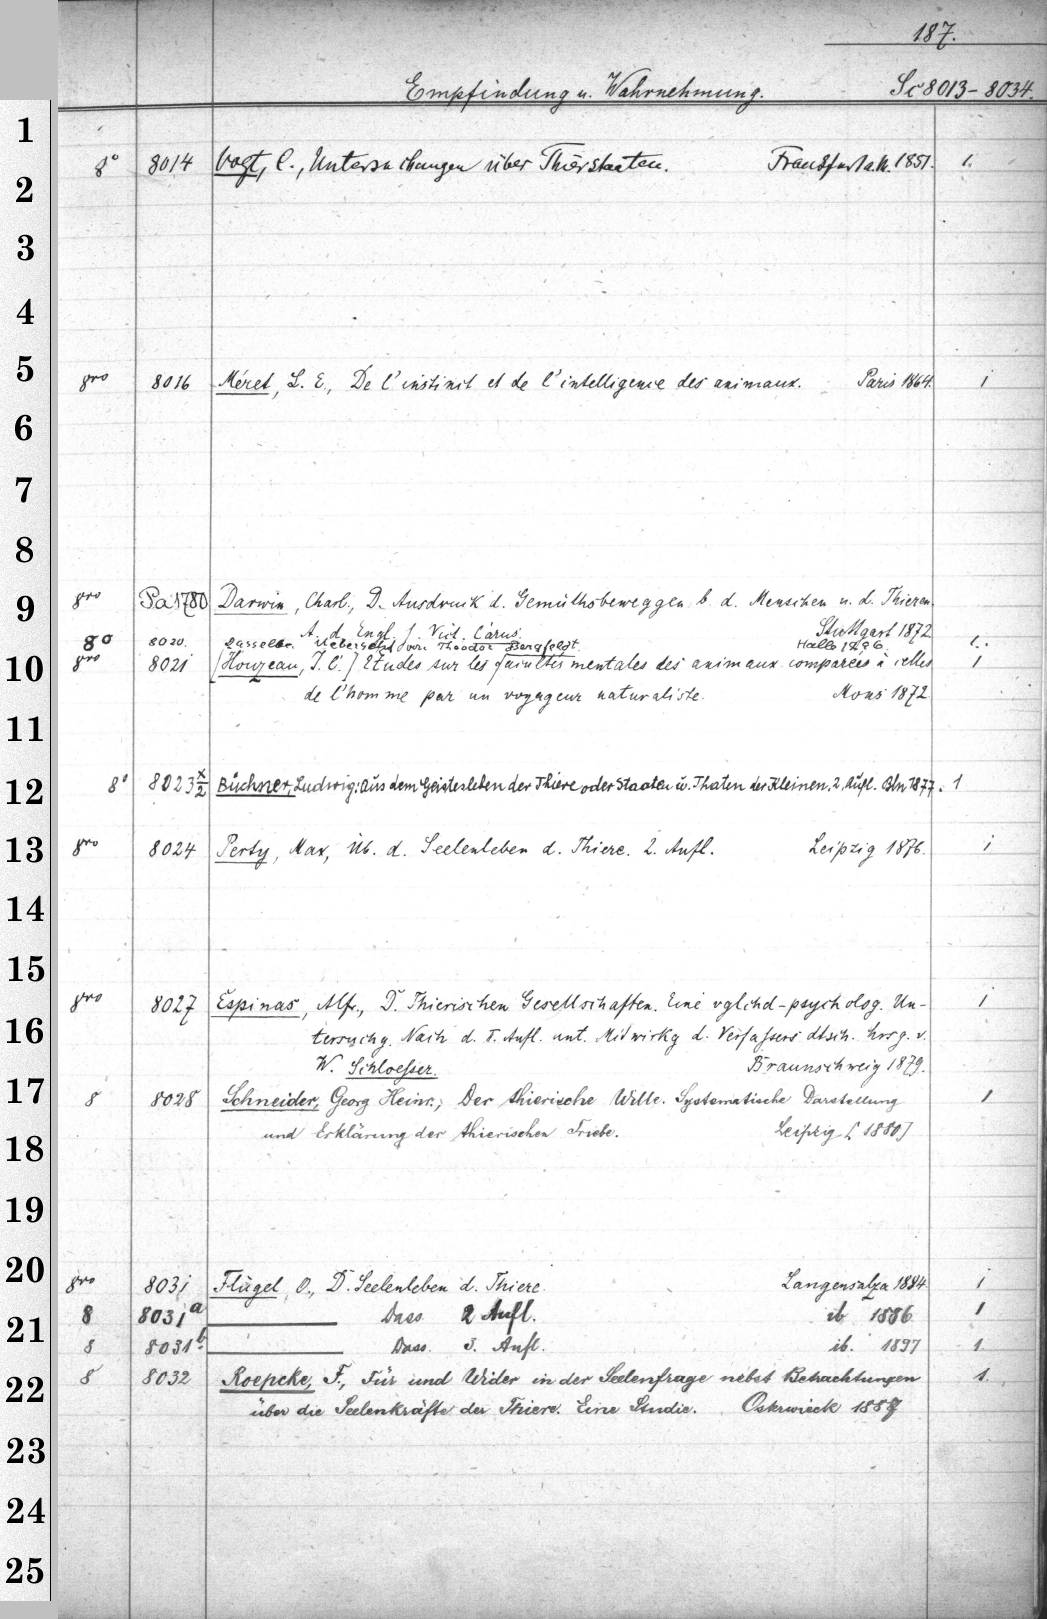 187.
Empfindung u. Wahrnehmung. Sc 8013-8034.
1
8° 8014 Vogt, C., Untersuchungen über Thierstaaten. Frankfurt a. M. 1851. 1.
2
3
4
5
8vo 8016 Méret, L. E., De l'instinct et de l'intelligence des animaux. Paris 1864. 1
6
7
8
9
8vo Pa 1780 Darwin, Charl., D. Ausdruck d. Gemüthsbeweggen b. d. Menschen u. d. Thieren.
A. d. Engl. v. Vict. Carus. Stuttgart 1872
8° 8020. Dasselbe. Uebersetzt von Theodor Bergfeldt. Halle 1896. 1.
10
8vo 8021 [Houzeau, J. C.] Etudes sur les facultés mentales des animaux comparées à celles 1
de l'homme par un voyageur naturaliste. Mons 1872.
11
12
8° 8023 x/2 Büchner, Ludwig: Aus dem Geistesleben der Thiere oder Staaten u. Thaten der Kleinen. 2. Aufl. Bln 1877. 1
13
8vo 8024 Perty, Max, Üb. d. Seelenleben d. Thiere. 2. Aufl. Leipzig 1876. 1
14
15
8vo 8027 Espinas, Alfr., D. Thierischen Gesellschaften. Eine vglchd-psycholog. Un- 1
16
tersuchg. Nach d. 2. Aufl. unt. Mitwirkg d. Verfassers dtsch. hrsg. v.
W. Schloesser. Braunschweig 1879.
17
8 8028 Schneider, Georg Heinr., Der thierische Wille. Systematische Darstellung 1
und Erklärung der thierischen Triebe. Leipzig [1880]
18
19
20
8vo 8031 Flügel, O., D. Seelenleben d. Thiere. Langensalza 1884. 1
8 8031a Dass. 2 Aufl. ib 1886 1
21
8 8031b Dass. 3. Aufl. ib. 1897 1.
22
8 8032 Roepcke, F., Für und Wider in der Seelenfrage nebst Betrachtungen 1.
über die Seelenkräfte der Thiere. Eine Studie. Osterwieck 1887
23
24
25